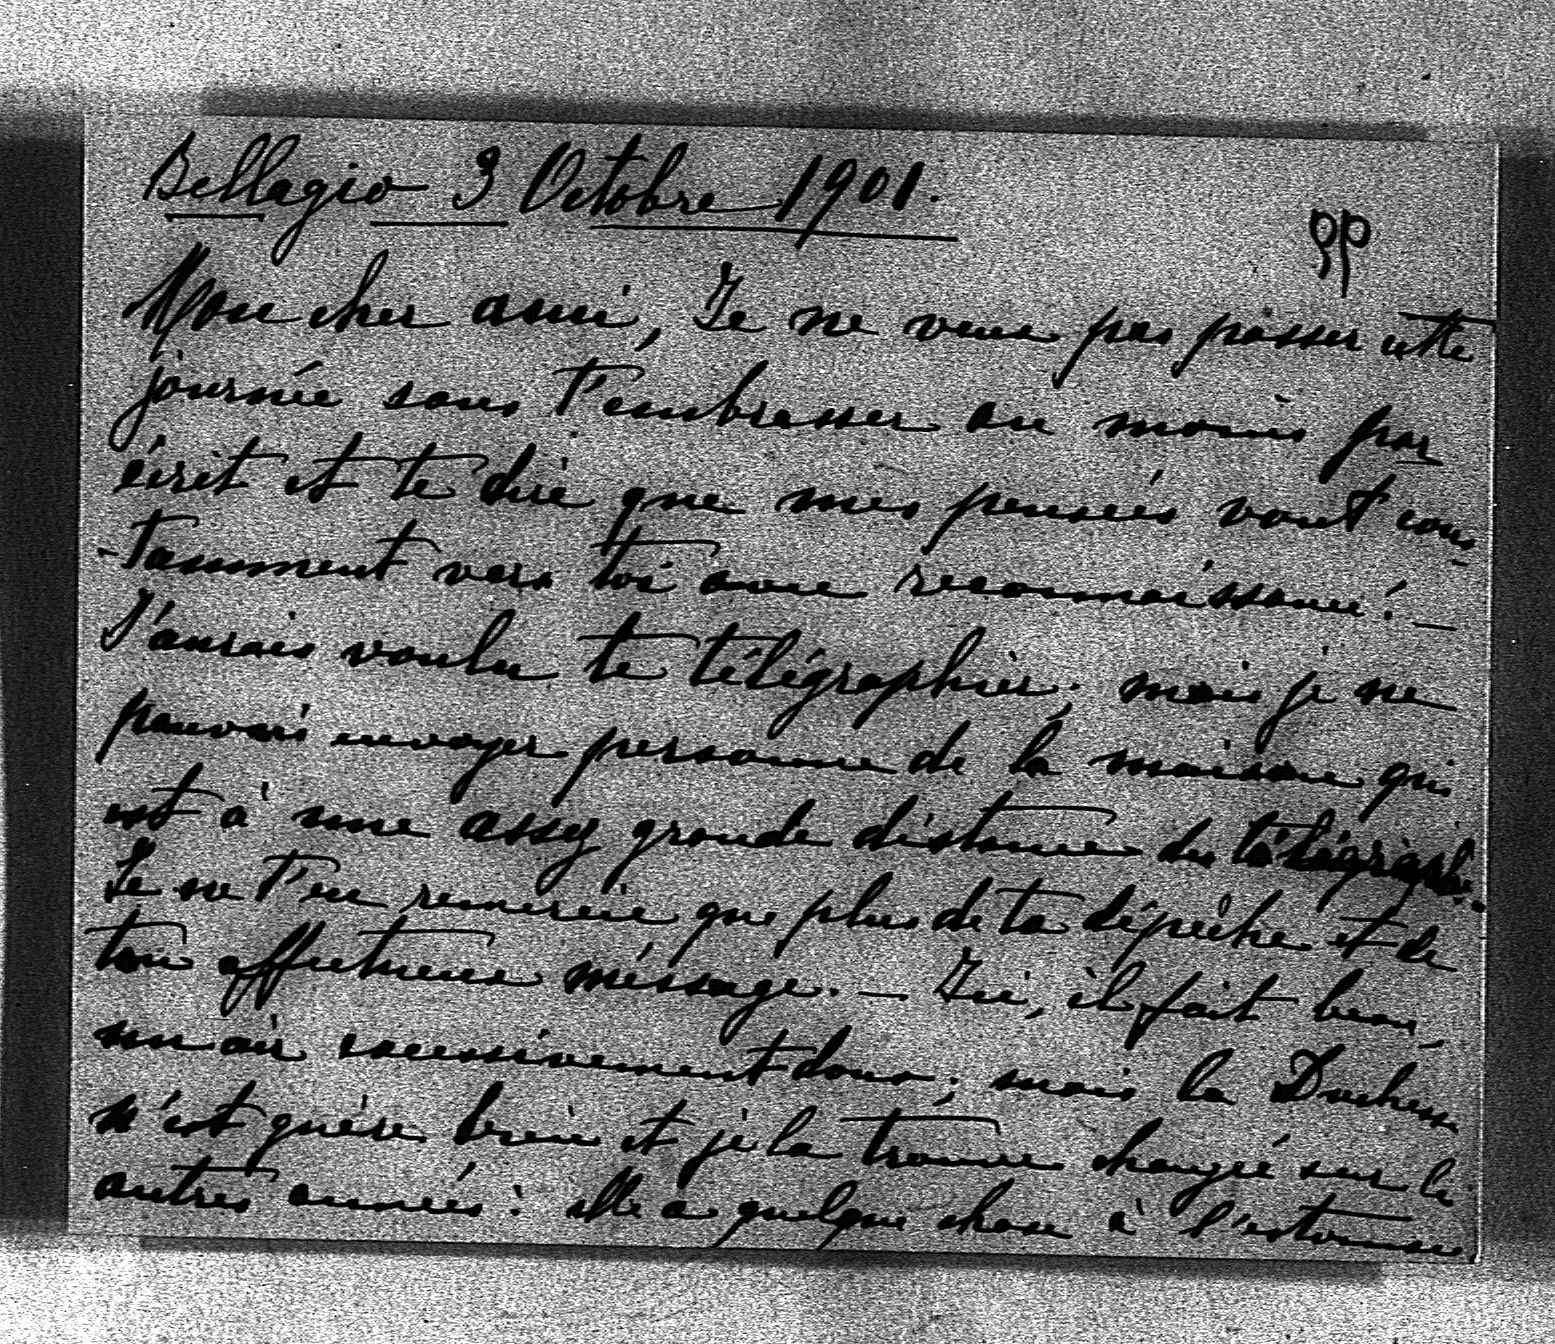 Bellagio 3 Octobre 1901.
Mon cher ami, Je ne veux pas passer cette
journée sans t'embrasser au moins par
écrit et te dire que mes pensées vont cons-
-tamment vers toi avec reconnaissance! —
J'aurais voulu te télégraphier; mais je ne
pouvais envoyer personne de la maison qui
est à une assez grande distance du télégraphe.
Je ne t'en remercie que plus de ta dépêche et de
ton affectueux méssage. — Ici, il fait beau,
un air excessivement doux; mais la Duchesse
n'est guère bien et je la trouve changée sur les
autres années: elle a quelque chose à l'estomac